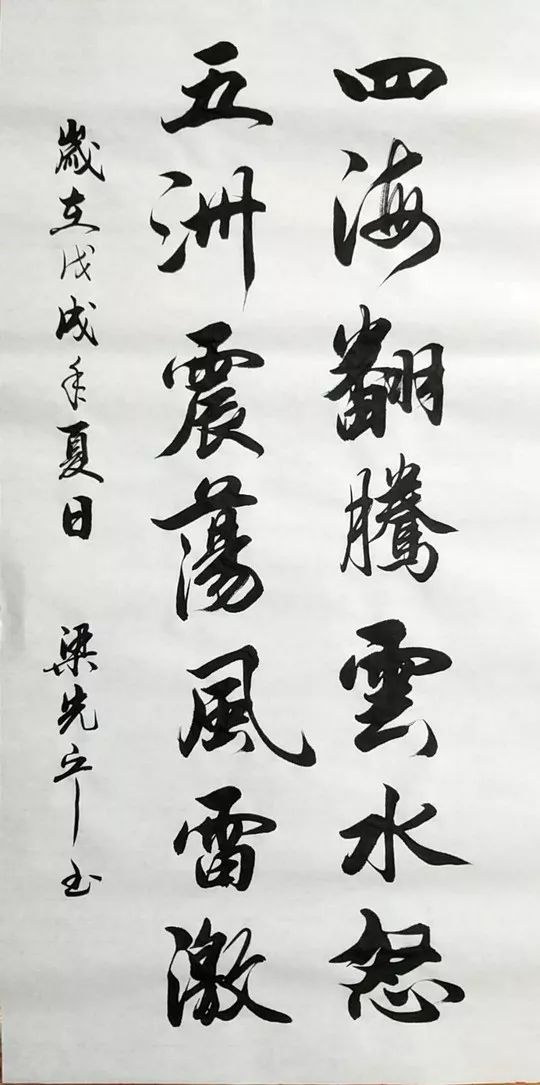 四海翻騰雲水怒
五洲震蕩風雷激
歲在戊戌年夏日 梁先立书